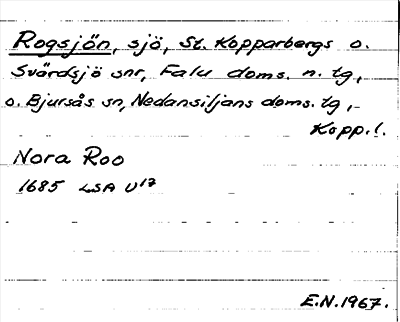 Rogsjön, sjö, St. Kopparbergs o.
Svärdsjö snr, Falu doms. n. tg,
o. Bjursås sn, Nedansiljans doms. tg,
Kopp. l.
Nora Roo
1685 LSA U17
E.N. 1967.